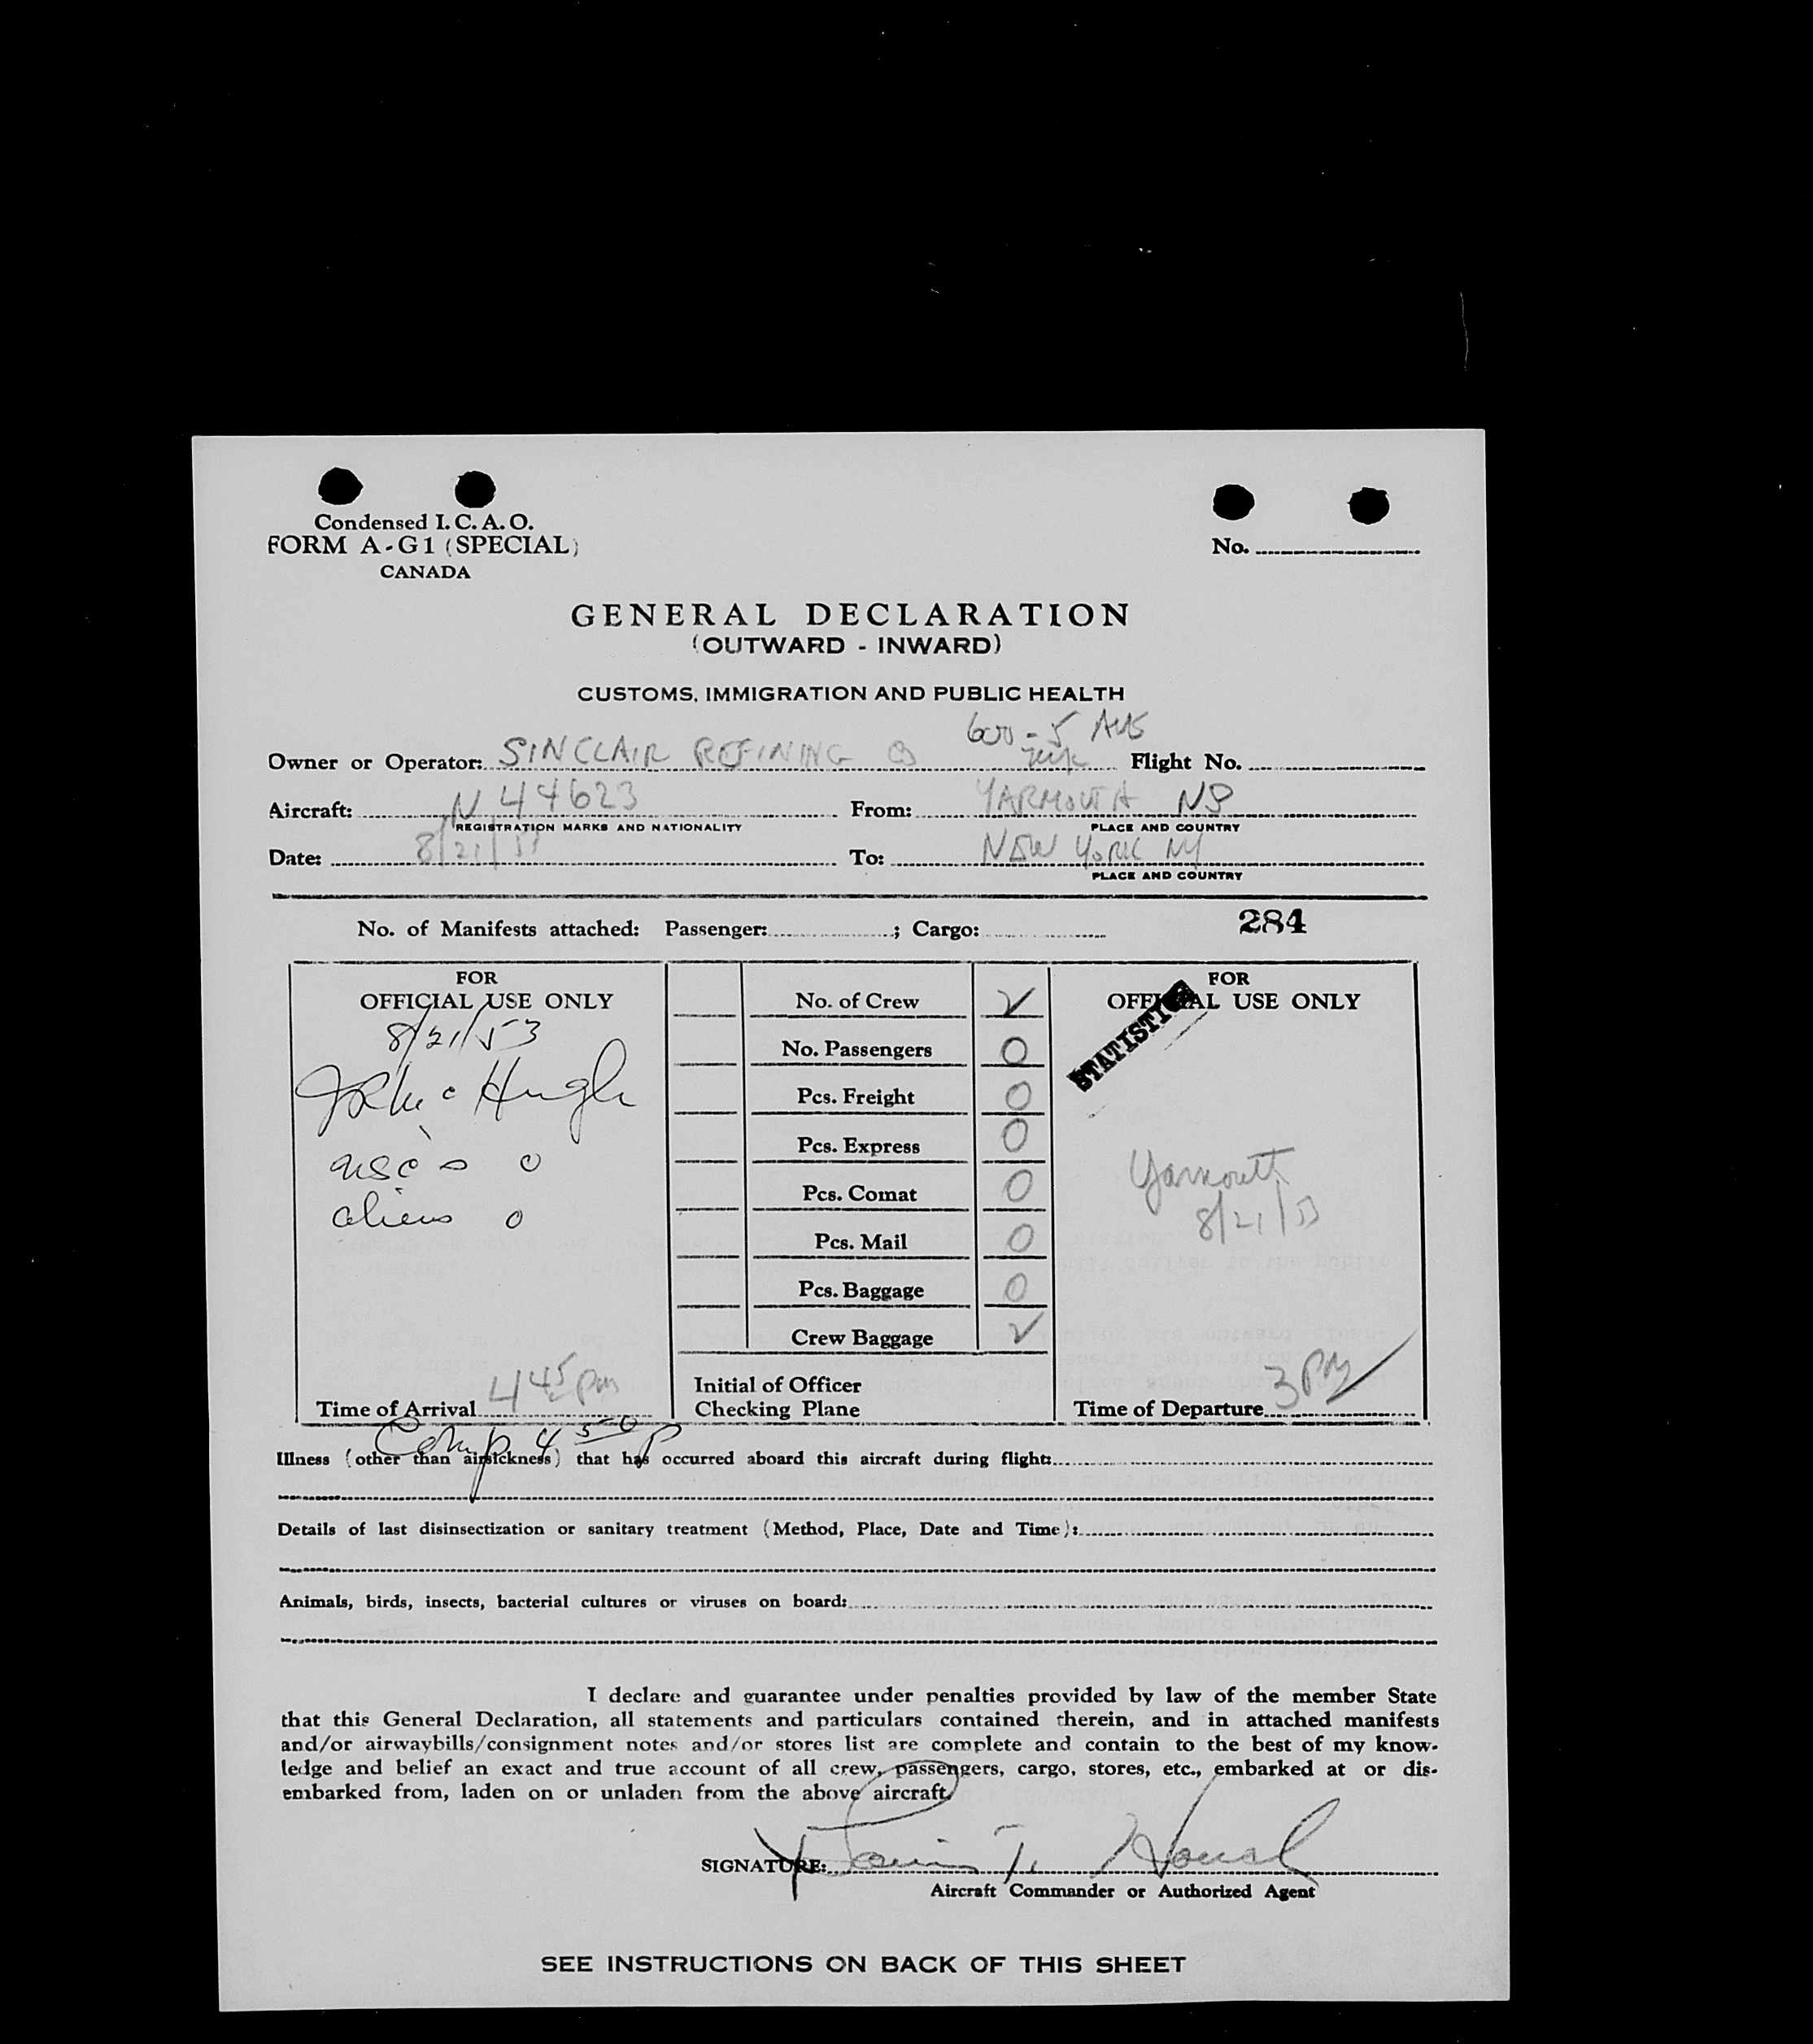 Condensed I. C. A. O.
FORM A-G1 (SPECIAL)
CANADA
No.
GENERAL DECLARATION
(OUTWARD - INWARD)
CUSTOMS, IMMIGRATION AND PUBLIC HEALTH
600-5
Owner or Operator: SINCLAIR REFINING Co Flight No.
Aircraft: N 44623 From: YARMOUTH NS
REGISTRATION MARKS AND NATIONALITY PLACE AND COUNTRY
Date: 8/21/53 To: NEW YORK NY
PLACE AND COUNTRY
No. of Manifests attached: Passenger: ; Cargo: 284
FOR
OFFICIAL USE ONLY
8/21/53
McHugh
USC's 0
aliens 0
Time of Arrival 4 45 pm
Comp 4 50 P
No. of Crew 2
No. Passengers 0
Pcs. Freight 0
Pcs. Express 0
Pcs. Comat 0
Pcs. Mail 0
Pcs. Baggage 0
Crew Baggage 2
Initial of Officer
Checking Plane
FOR
OFFICIAL USE ONLY
STATISTICS
Yarmouth
8/21/53
Time of Departure 3 PM
Illness (other than airsickness) that has occurred aboard this aircraft during flight:
Details of last disinsectization or sanitary treatment (Method, Place, Date and Time):
Animals, birds, insects, bacterial cultures or viruses on board:
I declare and guarantee under penalties provided by law of the member State
that this General Declaration, all statements and particulars contained therein, and in attached manifests
and/or airwaybills/consignment notes and/or stores list are complete and contain to the best of my know-
ledge and belief an exact and true account of all crew, passengers, cargo, stores, etc., embarked at or dis-
embarked from, laden on or unladen from the above aircraft.
SIGNATURE: T.
Aircraft Commander or Authorized Agent
SEE INSTRUCTIONS ON BACK OF THIS SHEET